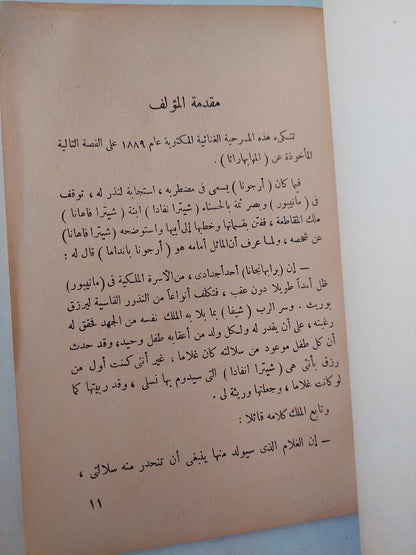 مقدمة المؤلف
تتكىء هذه المسرحية الغنائية المكتوبة عام ١٨٨٩ على القصة التالية
المأخوذة عن ( المهابهاراتا ) .
فيما كان ( أرجونا ) يسعى فى مضطربه ، استجابة لنذر له ، توقف
فى ( مانيبور ) وبصر ثمة بالحسناء ( شيترا نفادا ) ابنة ( شيترا فاهانا )
ملك المقاطعة ، ففتن بقسماتها وخطبها إلى أبيها واستوضحه ( شيترا فاهانا )
عن شخصه ، ولما عرف أن الماثل أمامه هو ( أرجونا بانداما ) قال له :
— إن ( برابهانجانا ) أحد أجدادى ، من الأسرة الملكية فى ( مانيبور )
ظل أمداً طويلا دون عقب ، فتكلف أنواعاً من النذور القاسية ليرزق
بوريث . وسر الرب ( شيفا ) بما بلا به الملك نفسه من الجهد فحقق له
رغبته ، على أن يقدر له ولكل ولد من أعقابه طفل وحيد ، وقد حدث
أن كل طفل موعود من سلالته كان غلاما ، غير أننى كنت أول من
رزق بأنثى هى ( شيترا انفادا ) التى سيدوم بها نسلى ، وقد ربيتها كما
لو كانت غلاما ، وجعلتها وريثة لى .
وتابع الملك كلامه قائلا :
— إن الغلام الذى سيولد منها ينبغى أن تنحدر منه سلالتى ،
١١